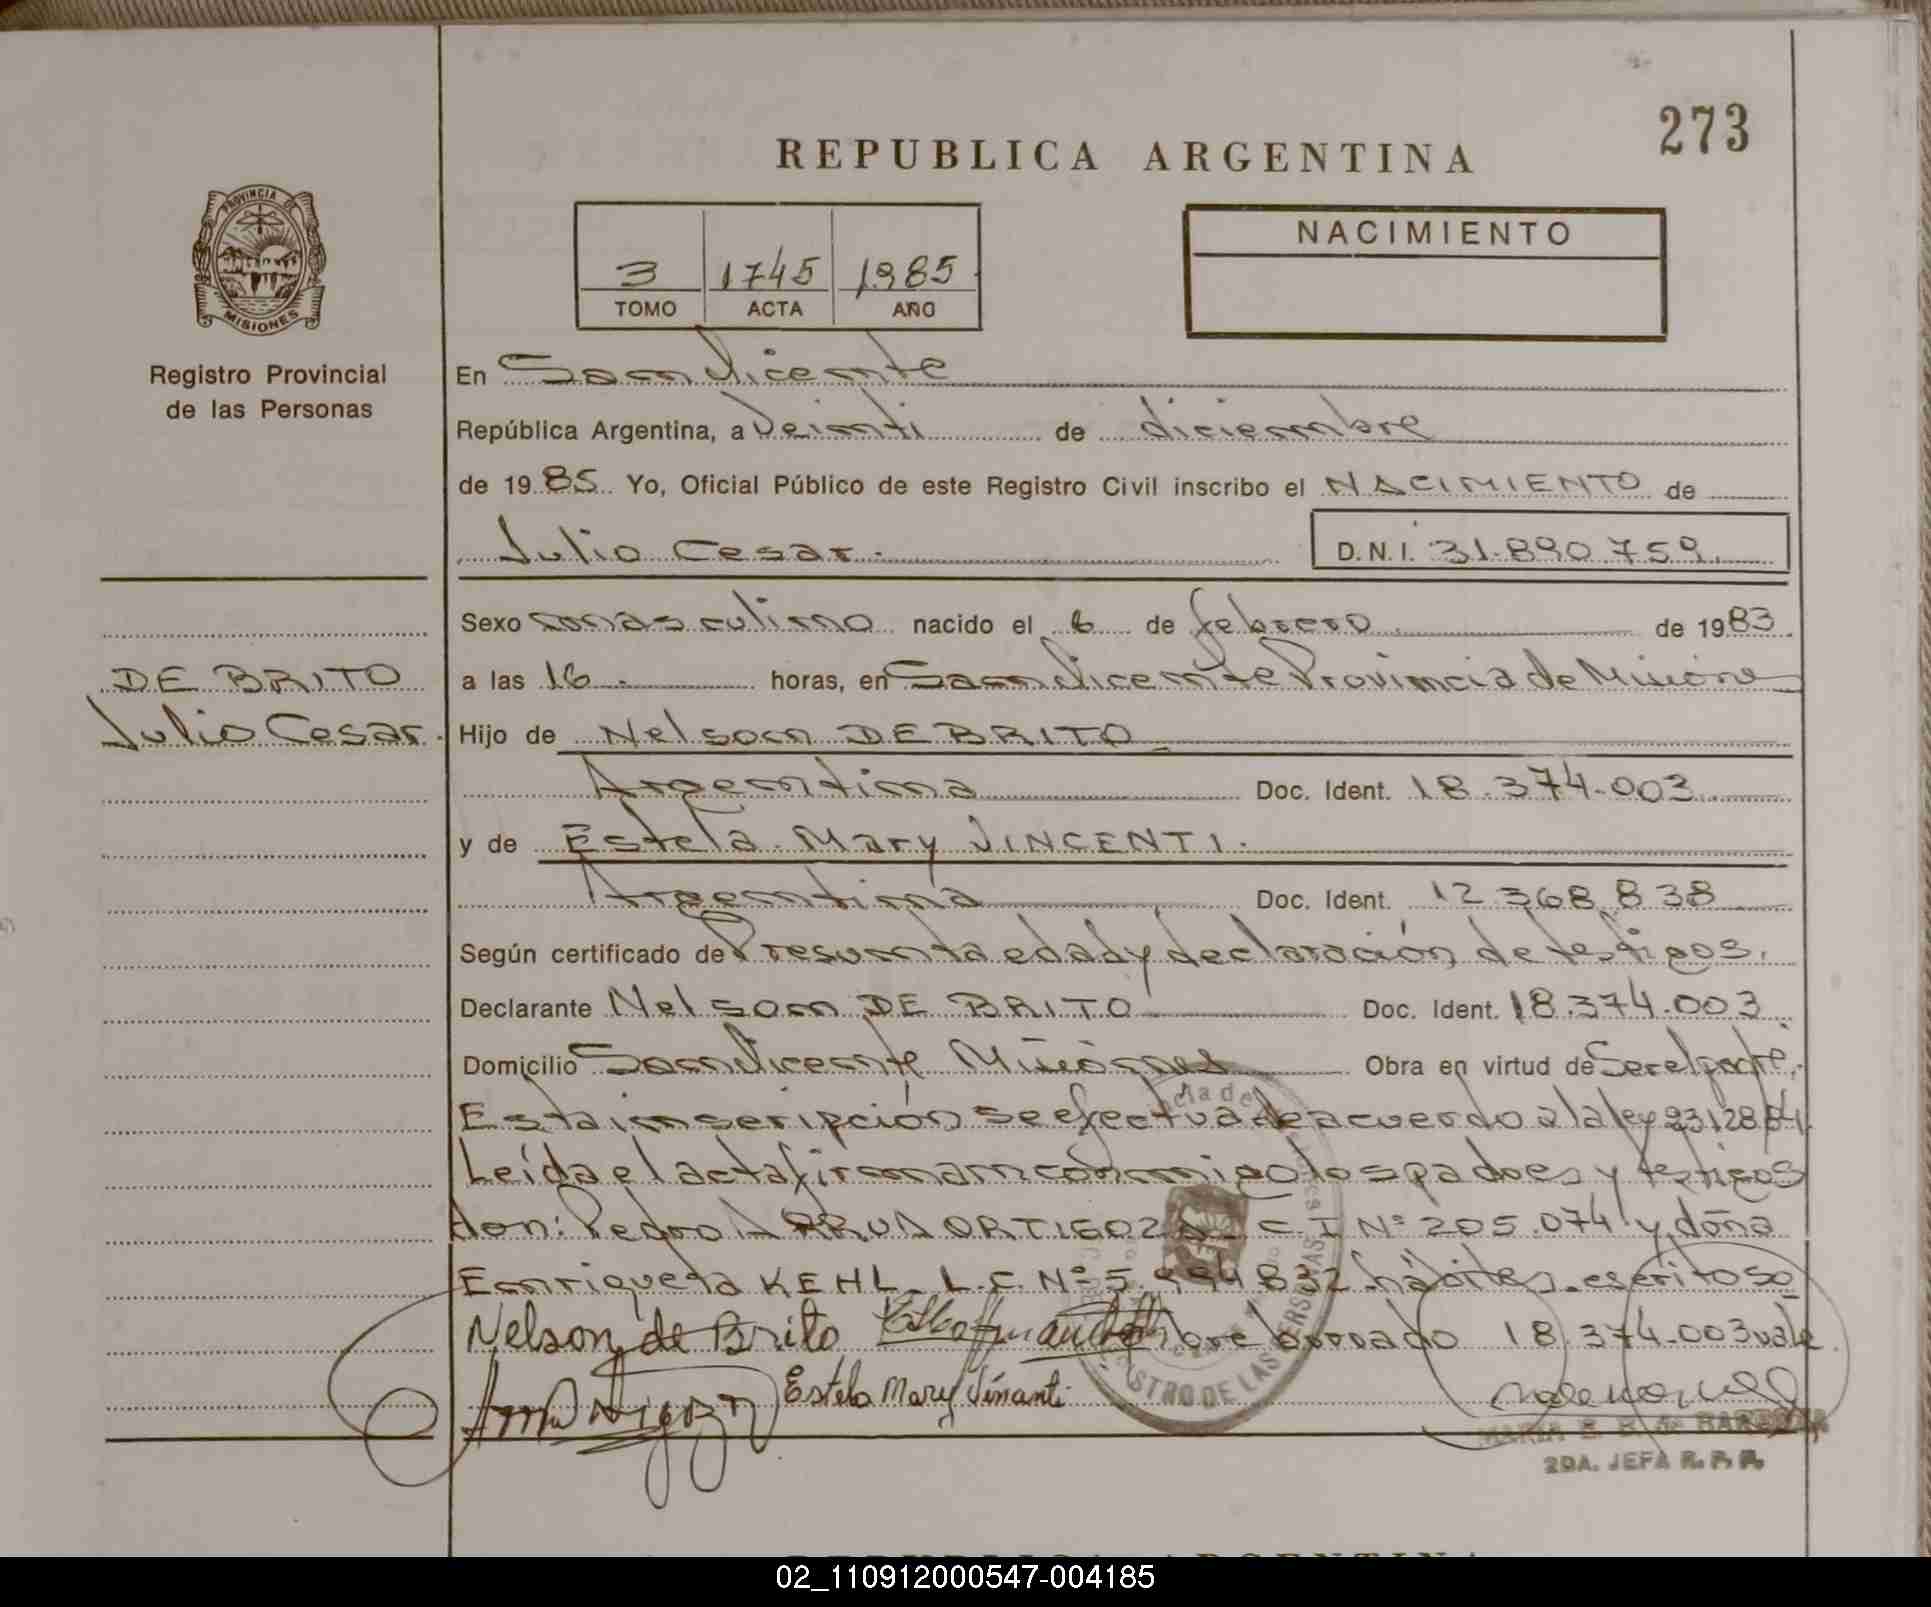 273
REPUBLICA ARGENTINA
PROVINCIA DE
MISIONES
Registro Provincial
de las Personas
3 1745 1985
TOMO ACTA AÑO
NACIMIENTO
En San Vicente
República Argentina, a Veinti de diciembre
de 1985 Yo, Oficial Público de este Registro Civil inscribo el NACIMIENTO de
Julio Cesar. D.N.I. 31.890.759.
Sexo masculino nacido el 6 de febrero de 1983
DE BRITO
Julio Cesar.
a las 16 horas, en San Vicente Provincia de Misiones
Hijo de Nelson DE BRITO
Argentina Doc. Ident. 18.374.003
y de Estela Mary VINCENTI.
Argentina Doc. Ident. 12.368.838
Según certificado de Presunta edad y declaración de testigos.
Declarante Nelson DE BRITO Doc. Ident. 18.374.003
Domicilio San Vicente Misiones Obra en virtud de Ser el padre.
Esta inscripción se efectua de acuerdo a la ley 23128/84
Leída el acta firman conmigo los padres y testigos
don: Pedro ARRUA ORTIGOZA C.I Nº 205.074 y doña
Enriqueta KEHL L.C. Nº 5. 832 hábiles. escrito so
Nelson de Brito bre borrado 18.374.003 vale.
Estela Mary Vinanti
REGISTRO DE LAS PERSONAS
MARIA E. B. de
2DA. JEFA R. P. P.
REPUBLICA ARGENTINA
02_110912000547-004185